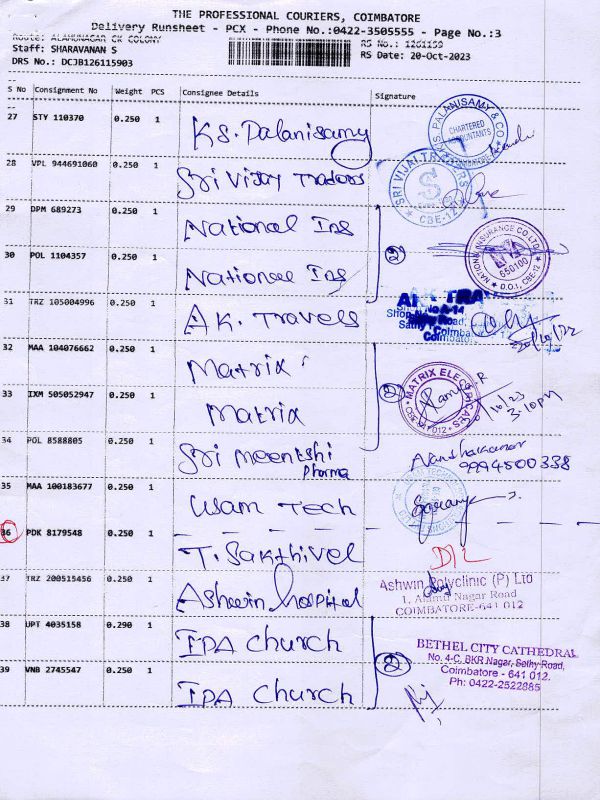 THE PROFESSIONAL COURIERS, COIMBATORE
Delivery Runsheet - PCX - Phone No.:0422-3505555 - Page No.:3
Route: ALAMUNAGAR CK COLONY
RS No.: 1261159
Staff: SHARAVANAN S
RS Date: 20-Oct-2023
DRS No.: DCJB126115903
S No Consignment No Weight PCS Consignee Details Signature
27 STY 110370 0.250 1 K.S. Palanisamy
K.S. PALANISAMY & CO.
CHARTERED ACCOUNTANTS
28 VPL 944691060 0.250 1 Sri Vijay Traders
SRI VIJAI TRADERS
S
CBE-12
29 DPM 689273 0.250 1 National Ins
30 POL 1104357 0.250 1 National Ins
2
NATIONAL INSURANCE CO. LTD.
650100
D.O.1., CBE-12
31 TRZ 105004996 0.250 1 A.K. Travels
A K TRA
Shop No A-14
Sathy Road,
Coimbatore
32 MAA 104076662 0.250 1 Matrix
33 IXM 505052947 0.250 1 Matrix
2
MATRIX ELECTRICALS
CBE-641 012
3.10pm
34 POL 8588805 0.250 1 Sri Meentshi
Pharma
9994500338
35 MAA 100183677 0.250 1 Usam Tech
36 PDK 8179548 0.250 1 T. Sakthivel
D/L
37 TRZ 200515456 0.250 1 Ashwin hospital
Ashwin Polyclinic (P) Ltd
1, Alamu Nagar Road
COIMBATORE-641 012
38 UPT 4035158 0.290 1 IPA Church
39 VNB 2745547 0.250 1 IPA Church
2
BETHEL CITY CATHEDRAL
No. 4-C, BKR Nagar, Sathy Road,
Coimbatore - 641 012.
Ph: 0422-2522885